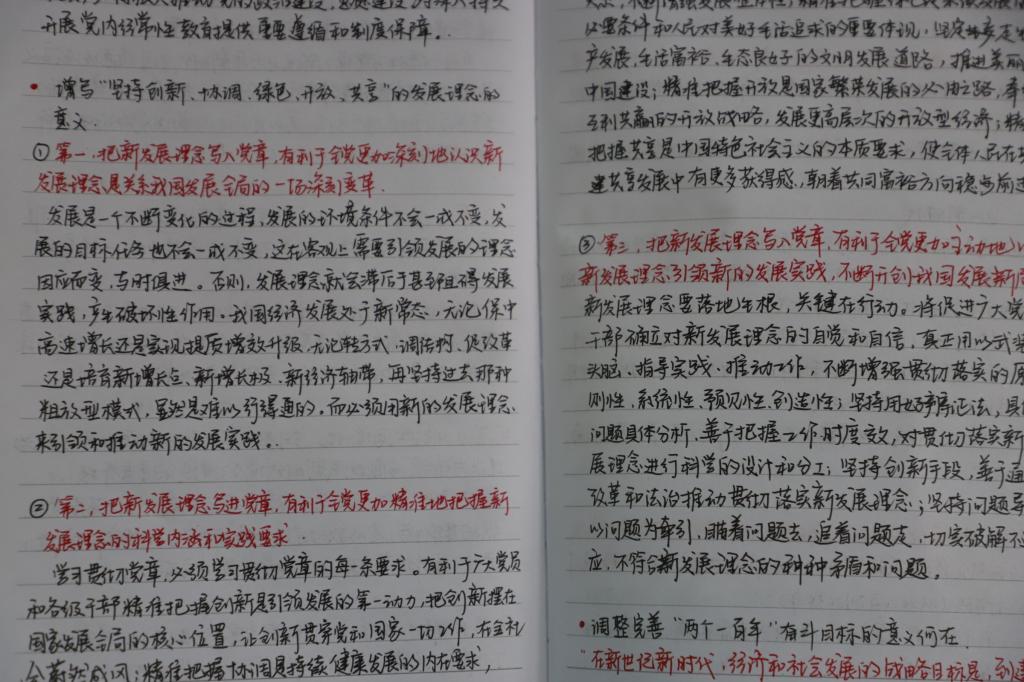 开展党内经常性教育提供重要遵循和制度保障。
• 增写“坚持创新、协调、绿色、开放、共享”的发展理念的
意义.
① 第一,把新发展理念写入党章,有利于全党更加深刻地认识新
发展理念是关系我国发展全局的一场深刻变革.
发展是一个不断变化的过程,发展的环境条件不会一成不变,发
展的目标任务也不会一成不变,这在客观上需要引领发展的理念
因应而变,与时俱进。否则,发展理念就会滞后于甚至阻碍发展
实践,产生破坏性作用。我国经济发展处于新常态,无论保中
高速增长还是实现提质增效升级,无论转方式、调结构、促改革
还是培育新增长点、新增长极、新经济轴带,再坚持过去那种
粗放型模式,显然是难以行得通的,而必须用新的发展理念
来引领和推动新的发展实践。
② 第二,把新发展理念写进党章,有利于全党更加精准地把握新
发展理念的科学内涵和实践要求
学习贯彻党章,必须学习贯彻党章的每一条要求。有利于广大党员
和各级干部精准把握创新是引领发展的第一动力,把创新摆在
国家发展全局的核心位置,让创新贯穿党和国家一切工作,在全社
会蔚然成风;精准把握协调是持续健康发展的内在要求,
必要条件和人民对美好生活追求的重要体现,坚定
产发展、生活富裕、生态良好的文明发展道路,推进美丽
中国建设;精准把握开放是国家繁荣发展的必由之路,奉
互利共赢的开放战略,发展更高层次的开放型经济;精
把握共享是中国特色社会主义的本质要求,使全体人民在
建共享发展中有更多获得感,朝着共同富裕方向稳步前进
③ 第三,把新发展理念写入党章,有利于全党更加主动地以
新发展理念引领新的发展实践,不断开创我国发展新
新发展理念要落地生根,关键在行动。将促进广大党
干部确立对新发展理念的自觉和自信,真正用以武装
头脑、指导实践、推动工作,不断增强贯彻落实的原
则性、系统性、预见性、创造性;坚持用好辩证法,具
问题具体分析,善于把握工作时度效,对贯彻落实新
展理念进行科学的设计和分工;坚持创新手段,善于通
改革和法治推动贯彻落实新发展理念;坚持问题导
以问题为牵引,瞄着问题去,追着问题走,切实破解不
应、不符合新发展理念的种种矛盾和问题。
• 调整完善“两个一百年”奋斗目标的意义何在
“在新世纪新时代,经济和社会发展的战略目标是,到建